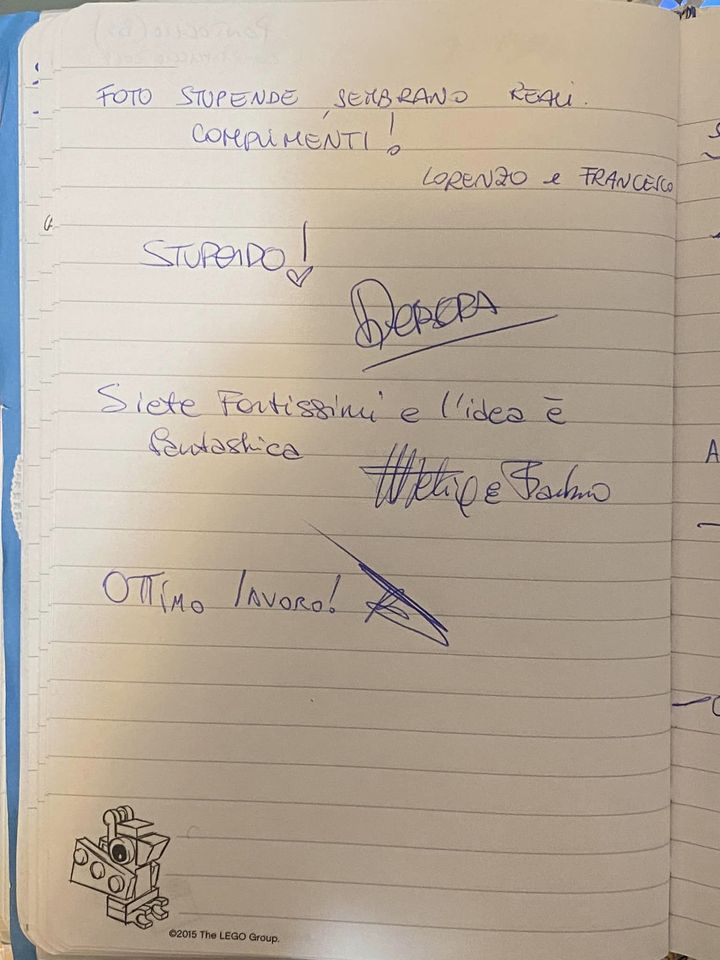 FOTO STUPENDE, SEMBRANO REALI.
COMPLIMENTI!
LORENZO e FRANCESCO
STUPENDO!
DEBORA
Siete Fortissimi e l'idea è
fantastica
OTTIMO LAVORO!
©2015 The LEGO Group.